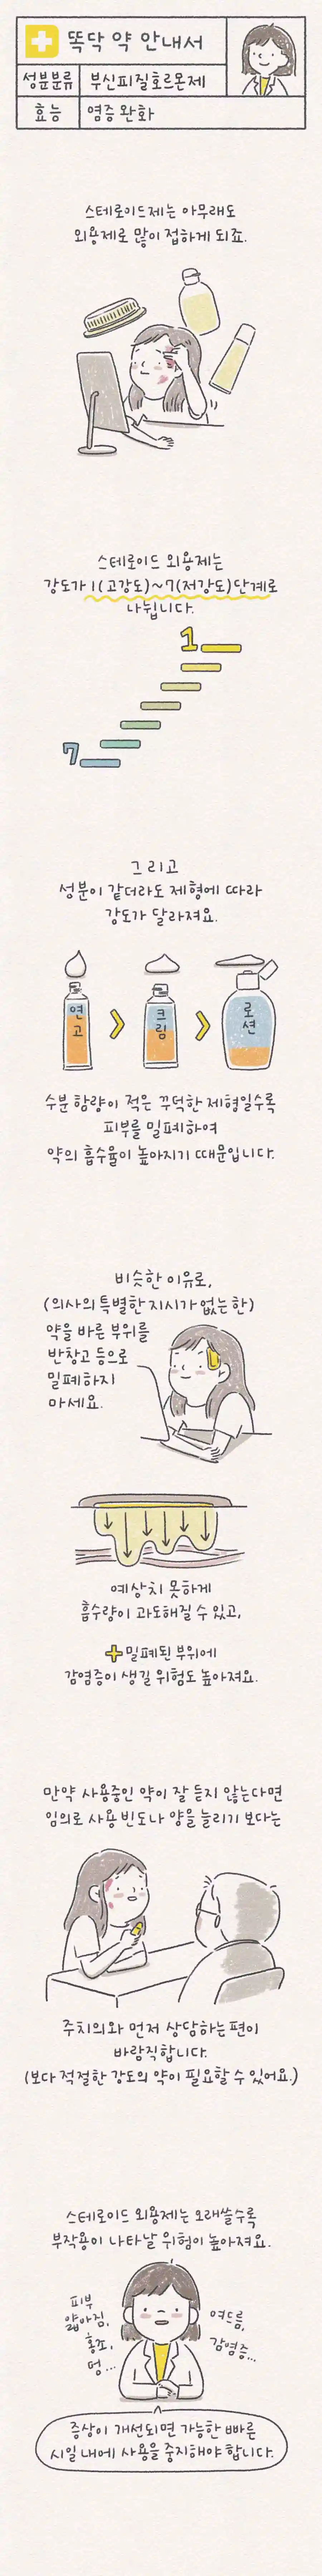 똑닥 약 안내서
성분분류 부신피질호르몬제
효능 염증 완화
스테로이드제는 아무래도
외용제로 많이 접하게 되죠.
스테로이드 외용제는
강도가 1(고강도)~7(저강도)단계로
나뉩니다.
1
7
그리고
성분이 같더라도 제형에 따라
강도가 달라져요.
연고 > 크림 > 로션
수분 함량이 적은 꾸덕한 제형일수록
피부를 밀폐하여
약의 흡수율이 높아지기 때문입니다.
비슷한 이유로,
(의사의 특별한 지시가 없는 한)
약을 바른 부위를
반창고 등으로
밀폐하지
마세요.
예상치 못하게
흡수량이 과도해질 수 있고,
+밀폐된 부위에
감염증이 생길 위험도 높아져요.
만약 사용중인 약이 잘 듣지 않는다면
임의로 사용 빈도나 양을 늘리기 보다는
주치의와 먼저 상담하는 편이
바람직합니다.
(보다 적절한 강도의 약이 필요할 수 있어요.)
스테로이드 외용제는 오래쓸수록
부작용이 나타날 위험이 높아져요.
피부
얇아짐,
홍조,
멍...
여드름,
감염증...
증상이 개선되면 가능한 빠른
시일 내에 사용을 중지해야 합니다.